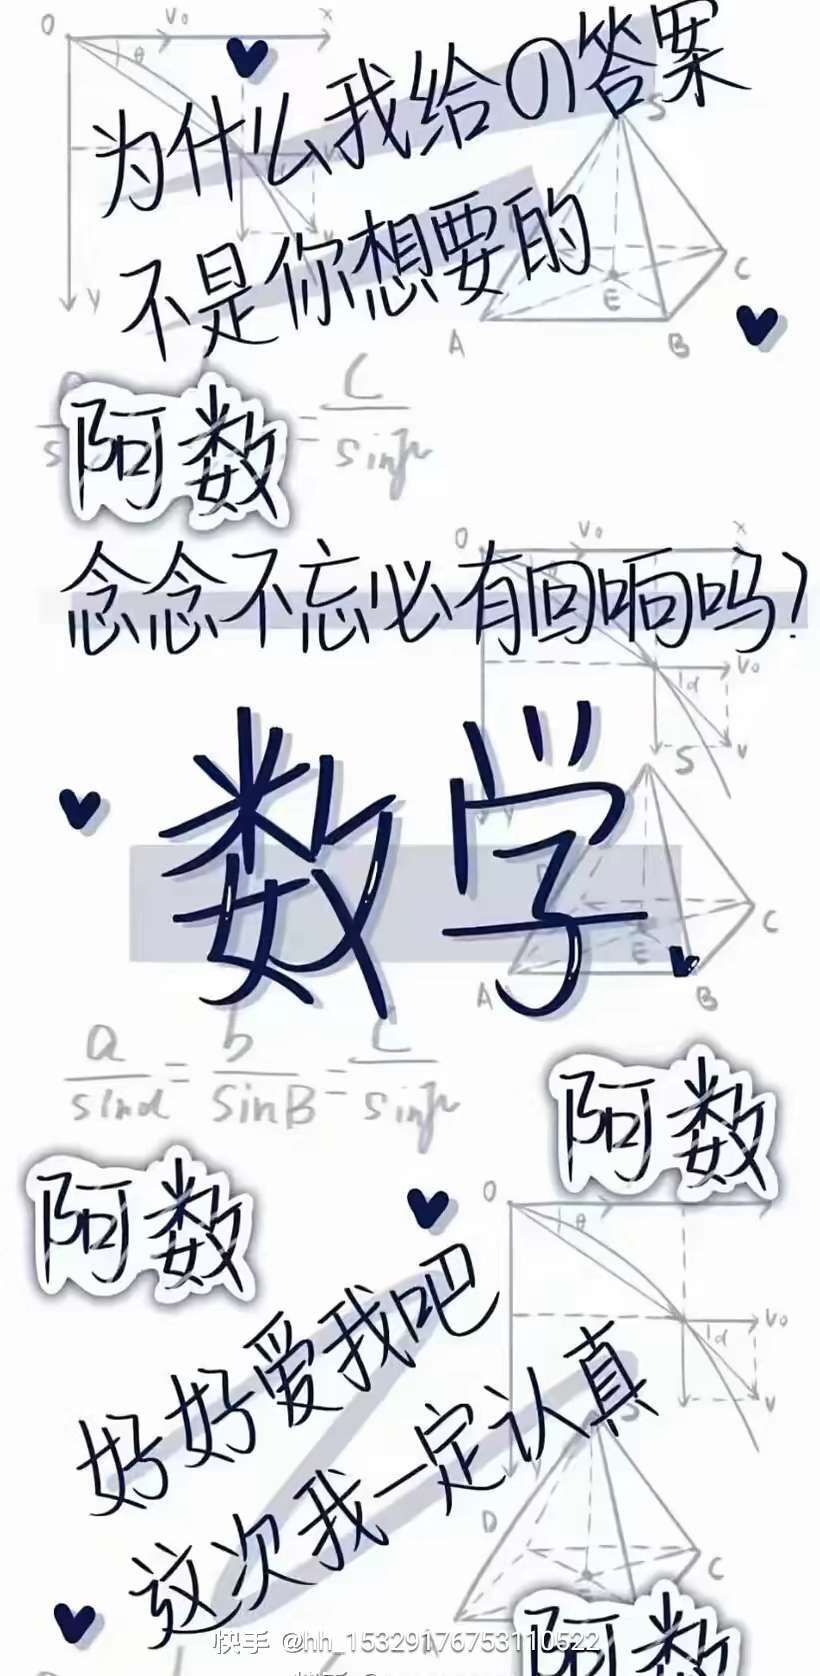 O V₀ x
θ
为什么我给の答案
S
不是你想要的
y
E C
A B
阿数
= C / sinγ
O V₀ x
念念不忘必有回响吗?
V₀
α
V
S
数学
C
E
A B
a / sinα = b / sinB = C / sinγ
阿数
阿数
O
θ
V₀
α
好好爱我吧
V
这次我一定认真
S
D
C
阿数
快手 @hh_15329176753110522